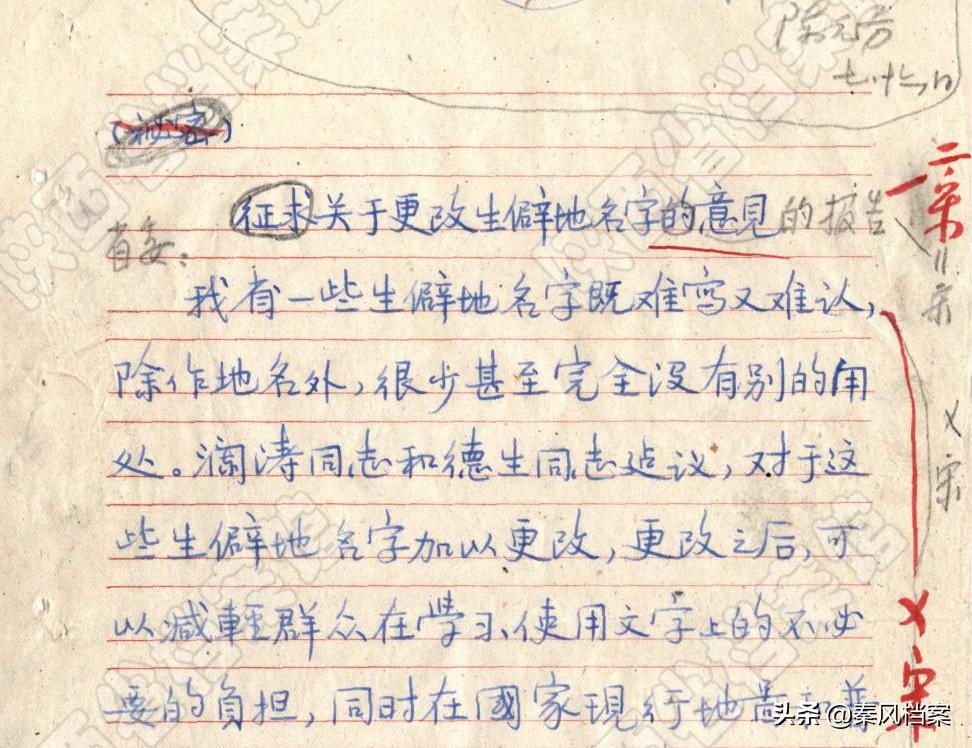 七·十七日
(秘密)
征求关于更改生僻地名字的意见的报告
省委:
我有一些生僻地名字既难写又难认,
除作地名外,很少甚至完全没有别的用
处。澜涛同志和德生同志建议,对于这
些生僻地名字加以更改,更改之后,可
以减輕群众在学习、使用文字上的不必
要的负担,同时在國家現行地
头条 @秦风档案
陕西省档案